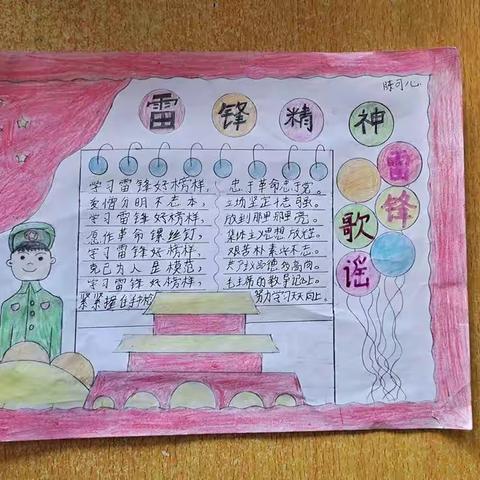 陈可儿
雷锋精神
雷锋
歌谣
学习雷锋好榜样，忠于革命忠于党。
爱憎分明不忘本，立场坚定斗志强。
学习雷锋好榜样，放到那里那里亮。
愿作革命螺丝钉，集体主义思想放光。
学习雷锋好榜样，艰苦朴素永不忘。
克己为人是模范，共产主义品德多高尚。
学习雷锋好榜样，毛主席的教导记心上。
紧紧握住手中 努力学习天天向上。